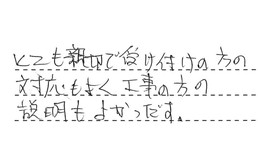 とても親切で受け付けの方の
対応もよく工事の方の
説明もよかっだす。